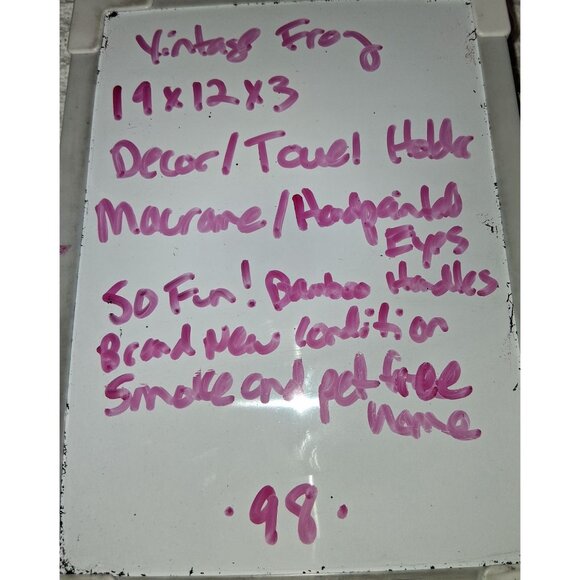 Vintage Frog
19x12x3
Decor/Towel Holder
Macrame/Handpainted
Eyes
So Fun! Bamboo Handles
Brand New Condition
Smoke and pet free
home
·98·